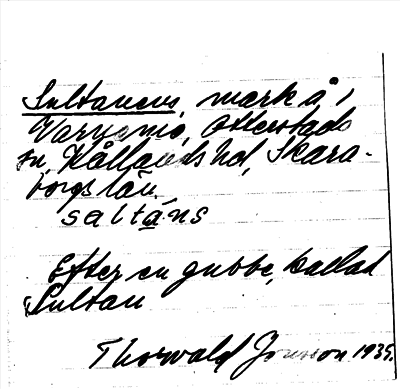 Sultanens, mark å i
Otterstads
sn, Kållands hd, Skara-
borgs län.
saltȧns
Efter en gubbe, kallad
Sultan
Thorwald Jonsson 1935.